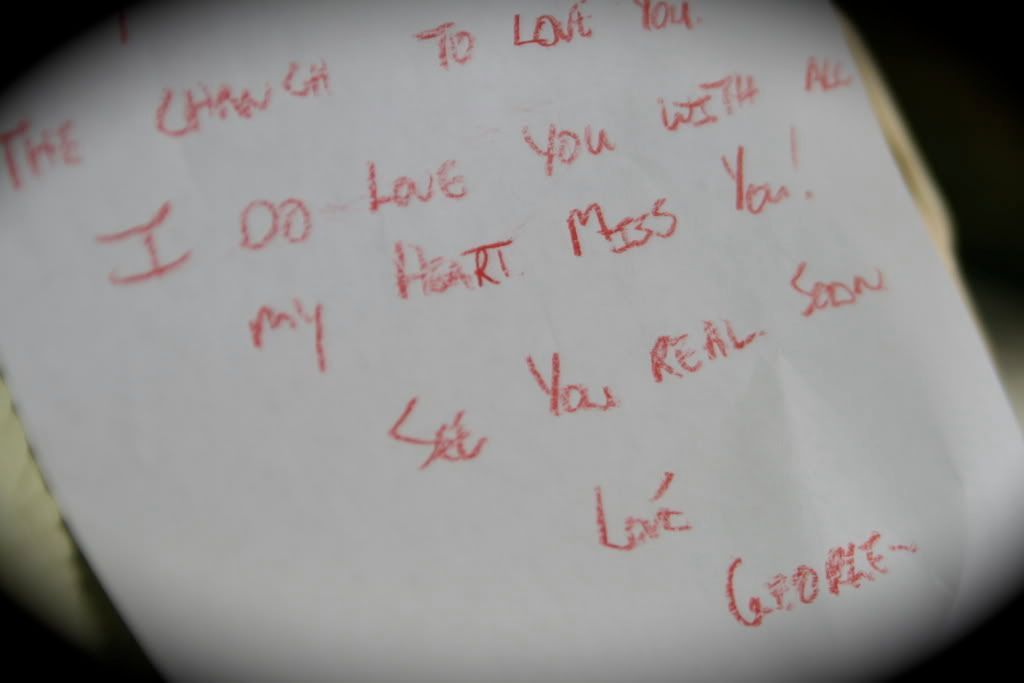 THE CHANCH TO LOVE YOU.
I DO LOVE YOU WITH ALL
MY HEART. MISS YOU!
SEE YOU REAL SOON
LOVE
GEORGE